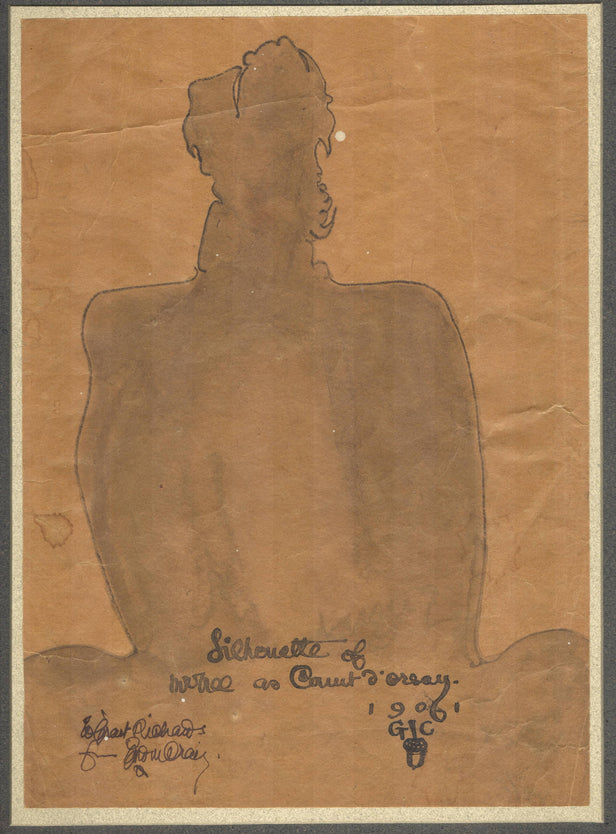 Silhouette of
Mr Tree as Count d'orsay.
1901
GC
to Grant Richards
from Gordon Craig